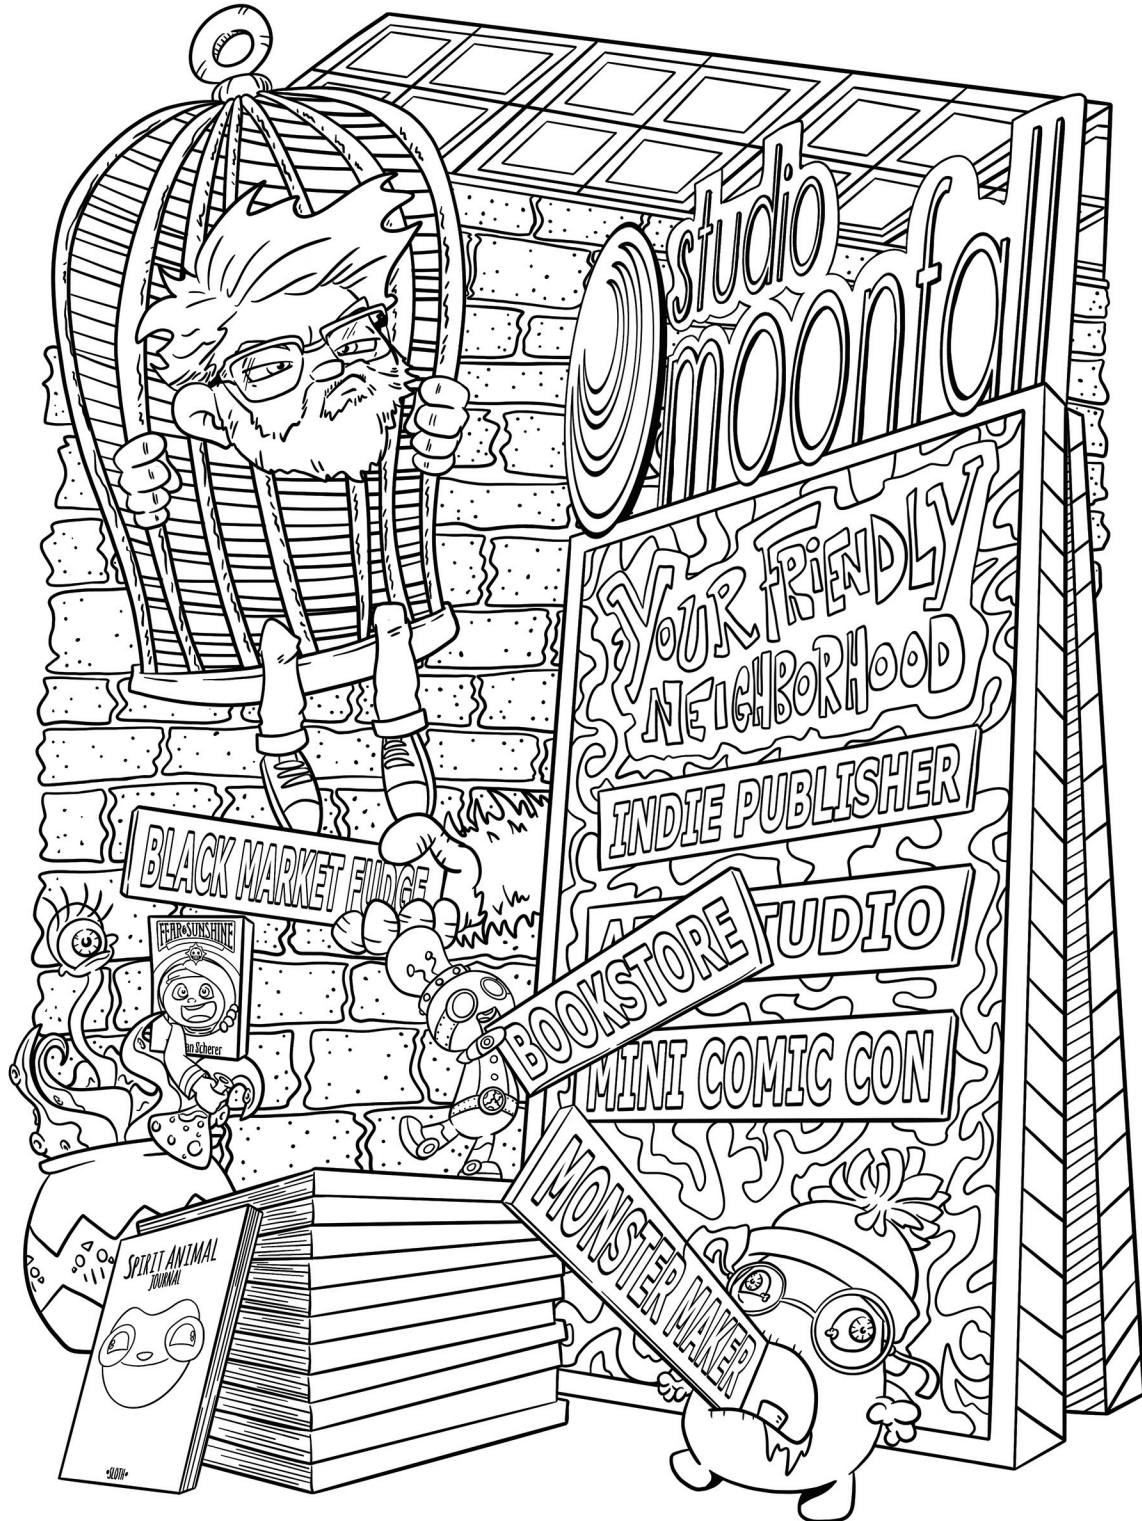 studio
moonfall
YOUR FRIENDLY
NEIGHBORHOOD
INDIE PUBLISHER
STUDIO
BOOKSTORE
MINI COMIC CON
MONSTER MAKER
BLACK MARKET FUDGE
FEAR & SUNSHINE
an Scherer
SPIRIT ANIMAL
JOURNAL
•SLOTH•